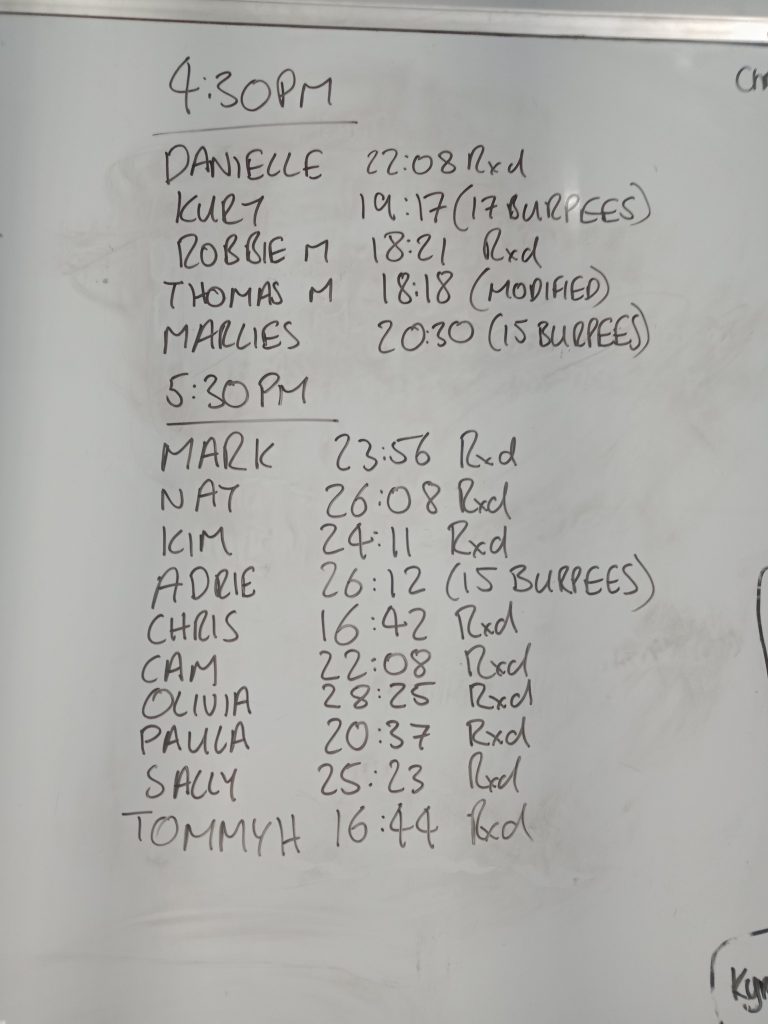 4:30PM
DANIELLE 22:08 Rxd
KURT 19:17 (17 BURPEES)
ROBBIE M 18:21 Rxd
THOMAS M 18:18 (MODIFIED)
MARLIES 20:30 (15 BURPEES)
5:30PM
MARK 23:56 Rxd
NAT 26:08 Rxd
KIM 24:11 Rxd
ADRIE 26:12 (15 BURPEES)
CHRIS 16:42 Rxd
CAM 22:08 Rxd
OLIVIA 28:25 Rxd
PAULA 20:37 Rxd
SALLY 25:23 Rxd
TOMMY H 16:44 Rxd